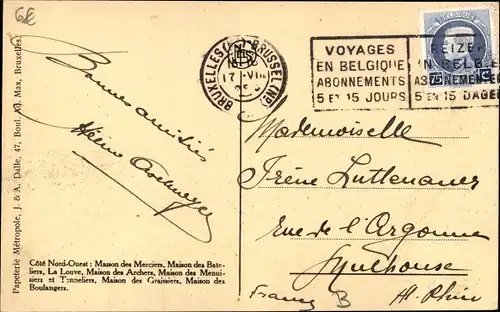 6€
BRUXELLES (N) BRUSSEL (ND)
17-VIII
VOYAGES
EN BELGIQUE
ABONNEMENTS
5 ET 15 JOURS
REIZEN
IN BELGIË
ABONNEMENTEN
5 EN 15 DAGEN
BELGIQUE
75 C
Bonnes amitiés
Mademoiselle
Irène Luttenauer
Rue de l'Argonne
Mulhouse
Ht. Rhin
France B
Papeterie Métropole, J. & A. Dalle, 47, Boul. Ad. Max, Bruxelles
Côté Nord-Ouest : Maison des Merciers, Maison des Bate-
liers, La Louve, Maison des Archers, Maison des Menui-
siers et Tonneliers, Maison des Graissiers, Maison des
Boulangers.